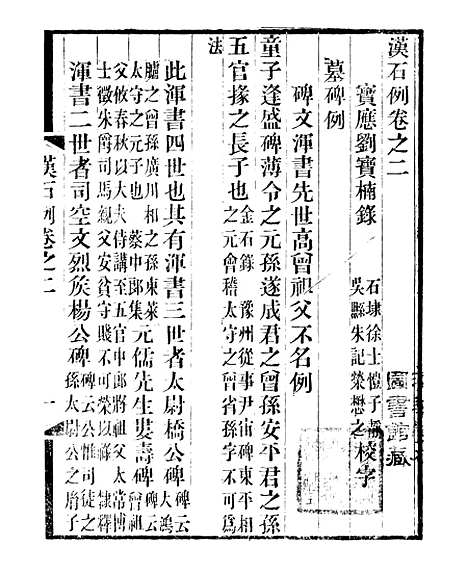 漢石例卷之二
寶應劉寶楠錄
石埭徐士愷子靜
吳縣朱記榮懋之校字
墓碑例
碑文渾書先世高曾祖父不名例
童子逢盛碑薄令之元孫遂成君之曾孫安平君之孫
五官掾之長子也金石錄豫州從事尹宙碑東平相
之元會稽太守之曾省孫字不可爲
法
此渾書四世也其有渾書三世者太尉橋公碑碑云大鴻
臚之曾孫廣川相之孫東萊
太守之元子也蔡中郎集元儒先生婁壽碑碑云曾祖
父攸春秋以大夫侍講至五官中郎將祖父太常博
士徵朱爵司馬親父安貧守賤不可榮以祿隸釋
渾書二世者司空文烈矦楊公碑碑云公惟司徒之
孫太尉公之胤子
漢石例卷之二
一
圖書館藏